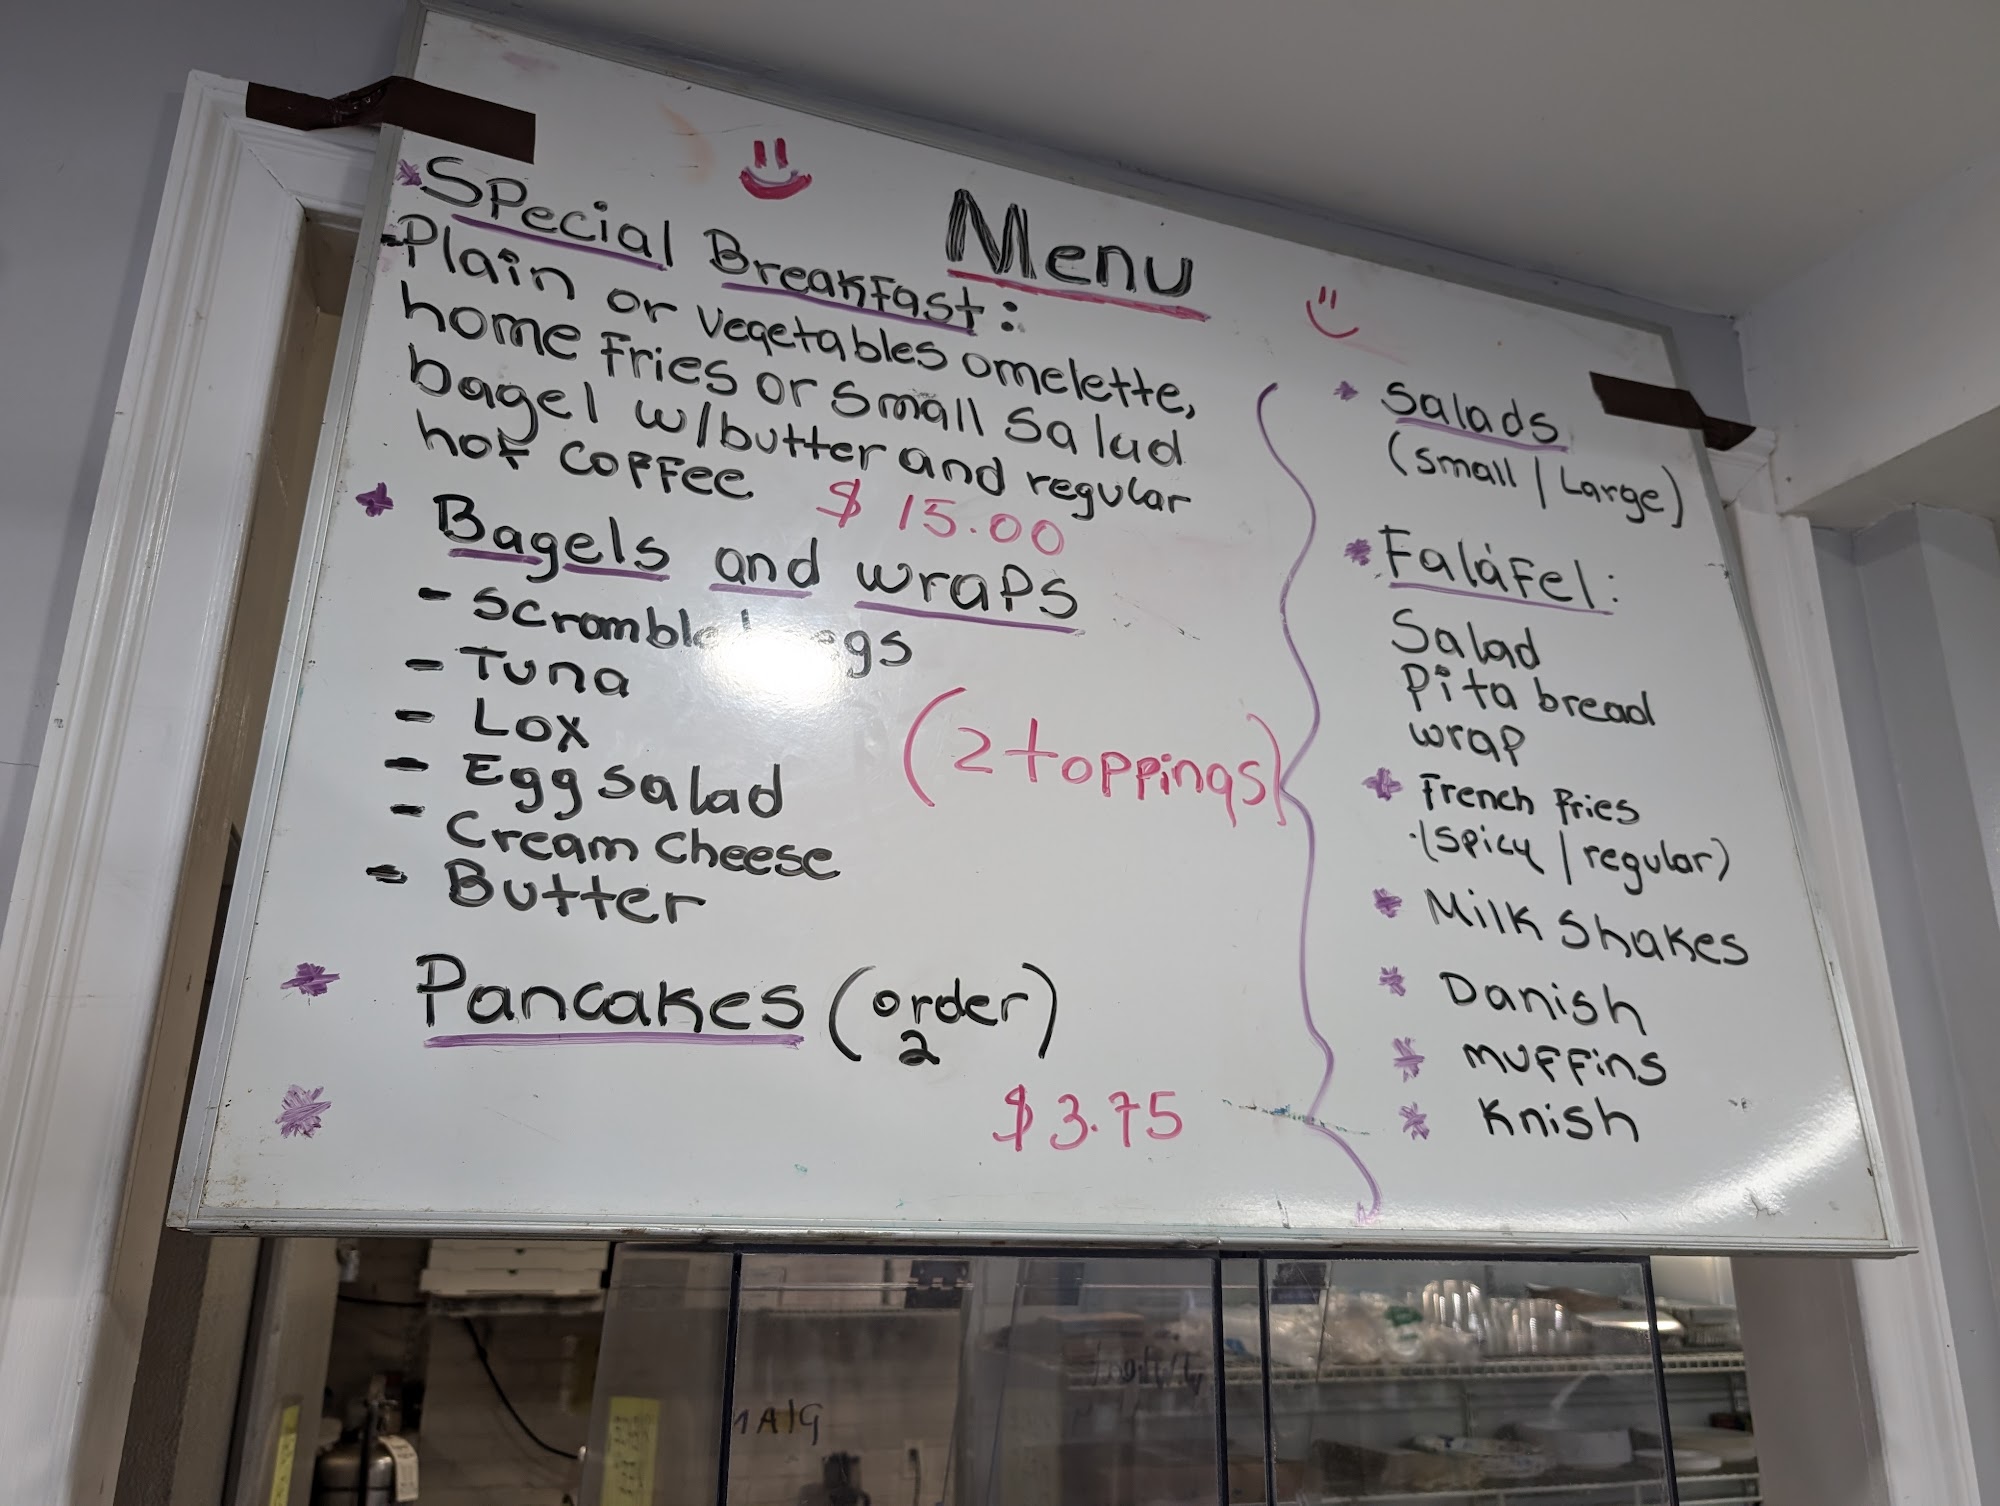 Menu
* Special Breakfast:
- Plain or vegetables omelette,
home fries or small salad
bagel w/butter and regular
hot coffee $15.00
* Bagels and wraps
- Scrambled eggs
- Tuna
- Lox
- Egg salad
- Cream cheese
- Butter
(2 toppings)
* Pancakes (order)
2
*
$3.75
* Salads
(small / Large)
* Falafel:
Salad
Pita bread
wrap
* French fries
(Spicy / regular)
* Milk Shakes
* Danish
* muffins
* Knish